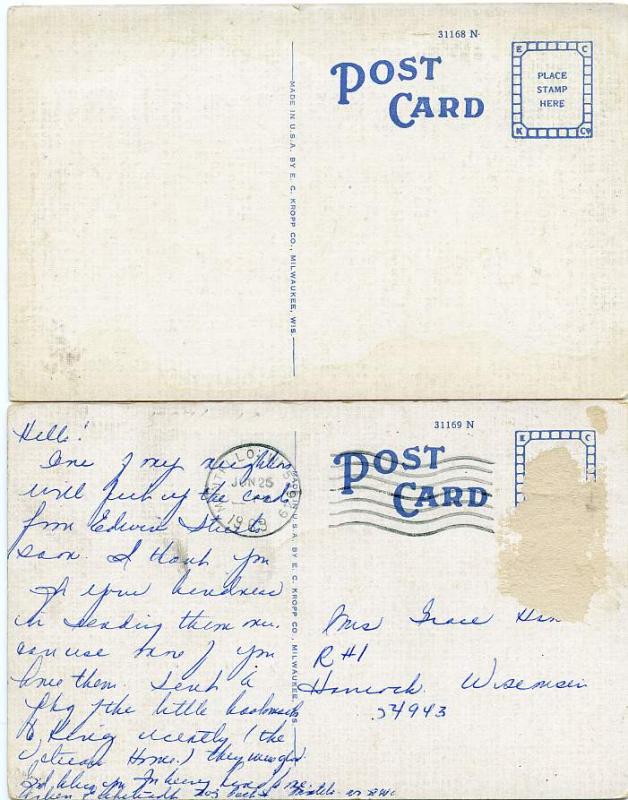 31168 N
POST
CARD
E C
PLACE
STAMP
HERE
K Co
MADE IN U.S.A. BY E. C. KROPP CO., MILWAUKEE, WIS.
31169 N
POST
CARD
E C
JUN 25
MADE IN U.S.A. BY E. C. KROPP CO., MILWAUKEE, WIS.
Hello!
One of my neighbors
will pick up the cards
from Edwin
soon. I thank you
of your kindness
in sending them on.
can use some if you
have them. Sent a
pkg of the little bookmarks
to King recently (the
Veteran Home.) they
Mrs Grace
R #1
Hancock Wisconsin
54943